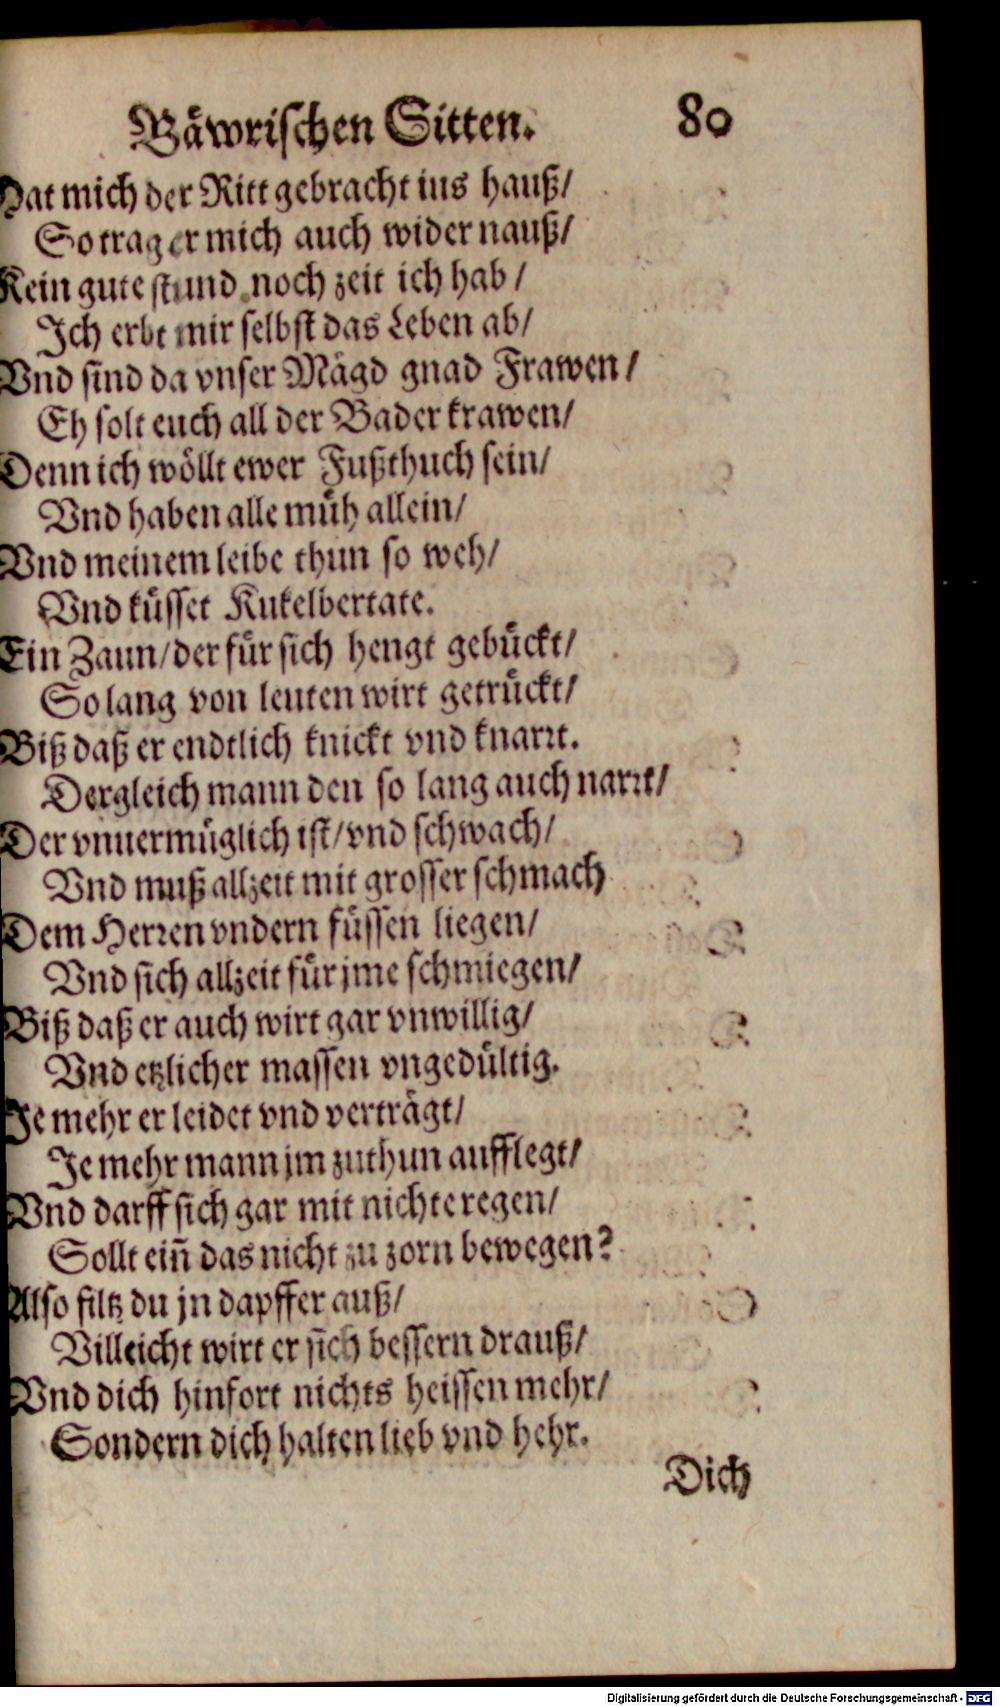 Bäwrischen Sitten. 80
Hat mich der Ritt gebracht ins hauß/
So trag er mich auch wider nauß/
Kein gute stund noch zeit ich hab/
Ich erbt mir selbst das Leben ab/
Vnd sind da vnser Mägd gnad Frawen/
Eh solt euch all der Bader krawen/
Denn ich wöllt ewer Fußthuch sein/
Vnd haben alle müh allein/
Vnd meinem leibe thun so weh/
Vnd küsset Kukelbertate.
Ein Zaun/ der für sich hengt gebückt/
So lang von leuten wirt getrückt/
Biß daß er endtlich knickt vnd knarrt.
Dergleich mann den so lang auch narrt/
Der vnuermüglich ist/ vnd schwach/
Vnd muß allzeit mit grosser schmach
Dem Herren vndern füssen liegen/
Vnd sich allzeit für jme schmiegen/
Biß daß er auch wirt gar vnwillig/
Vnd etzlicher massen vngedültig.
Je mehr er leidet vnd verträgt/
Je mehr mann jm zuthun aufflegt/
Vnd darff sich gar mit nichte regen/
Sollt ein̄ das nicht zu zorn bewegen?
Also filtz du jn dapffer auß/
Villeicht wirt er sich bessern drauß/
Vnd dich hinfort nichts heissen mehr/
Sondern dich halten lieb vnd hehr.
Dich
Digitalisierung gefördert durch die Deutsche Forschungsgemeinschaft - DFG